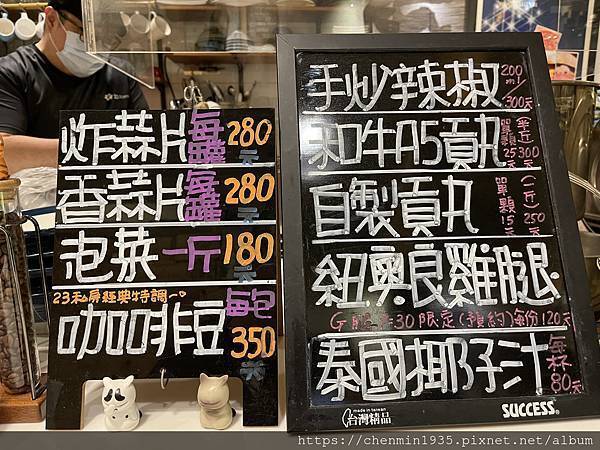 炸蒜片每罐280元
香蒜片每罐280元
泡菜一斤180元
23私房經典特調
咖啡豆每包350元
手炒辣椒200ml/300元
和牛A5貢丸單顆25元半斤300
自製貢丸單顆15元(一斤)250元
紐奧良雞腿
30限定(預約)每份120元
泰國椰子汁每杯80元
made in taiwan
台灣精品
SUCCESS
https://chenmin1935.pixnet.net/album